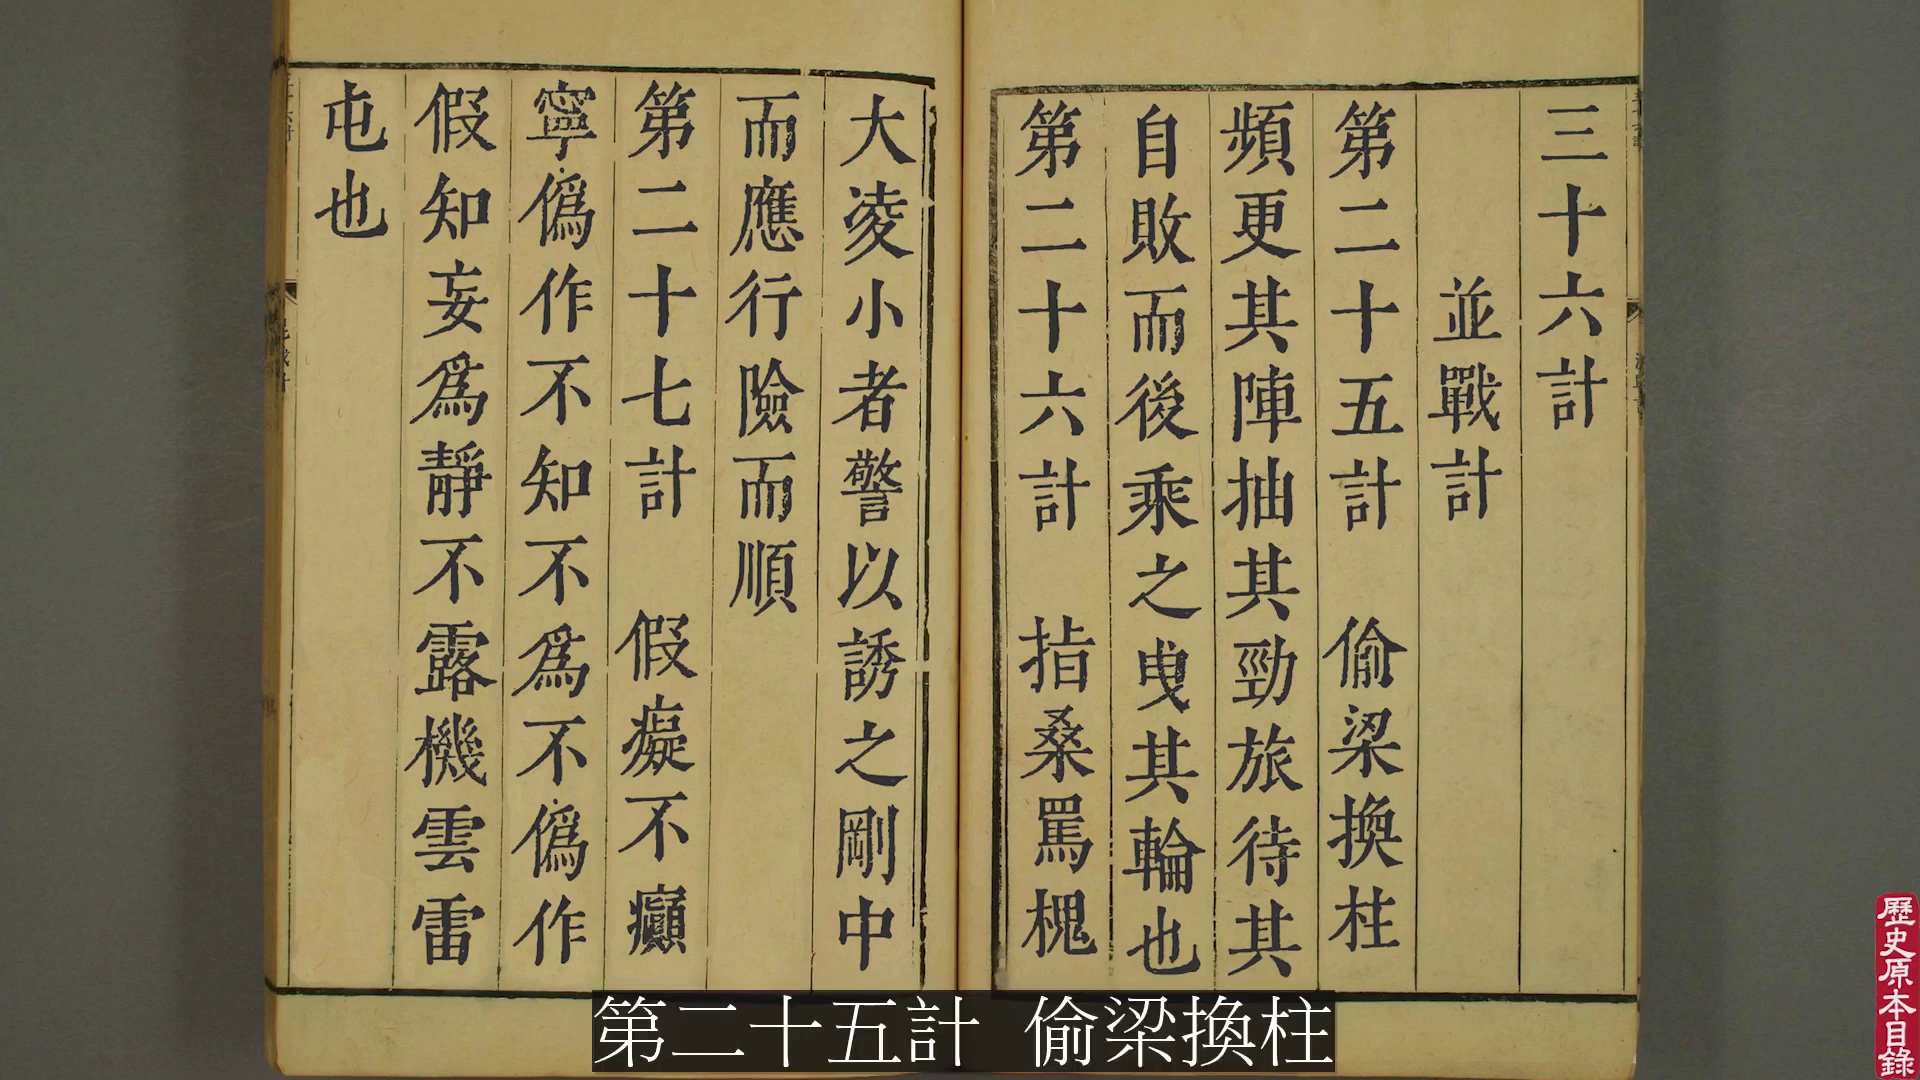 三十六計
並戰計
第二十五計 偷梁換柱
頻更其陣抽其勁旅待其
自敗而後乘之曳其輪也
第二十六計 指桑罵槐
大凌小者警以誘之剛中
而應行險而順
第二十七計 假癡不癲
寧偽作不知不為不偽作
假知妄為靜不露機雲雷
屯也
第二十五計 偷梁換柱
歷史原本目錄